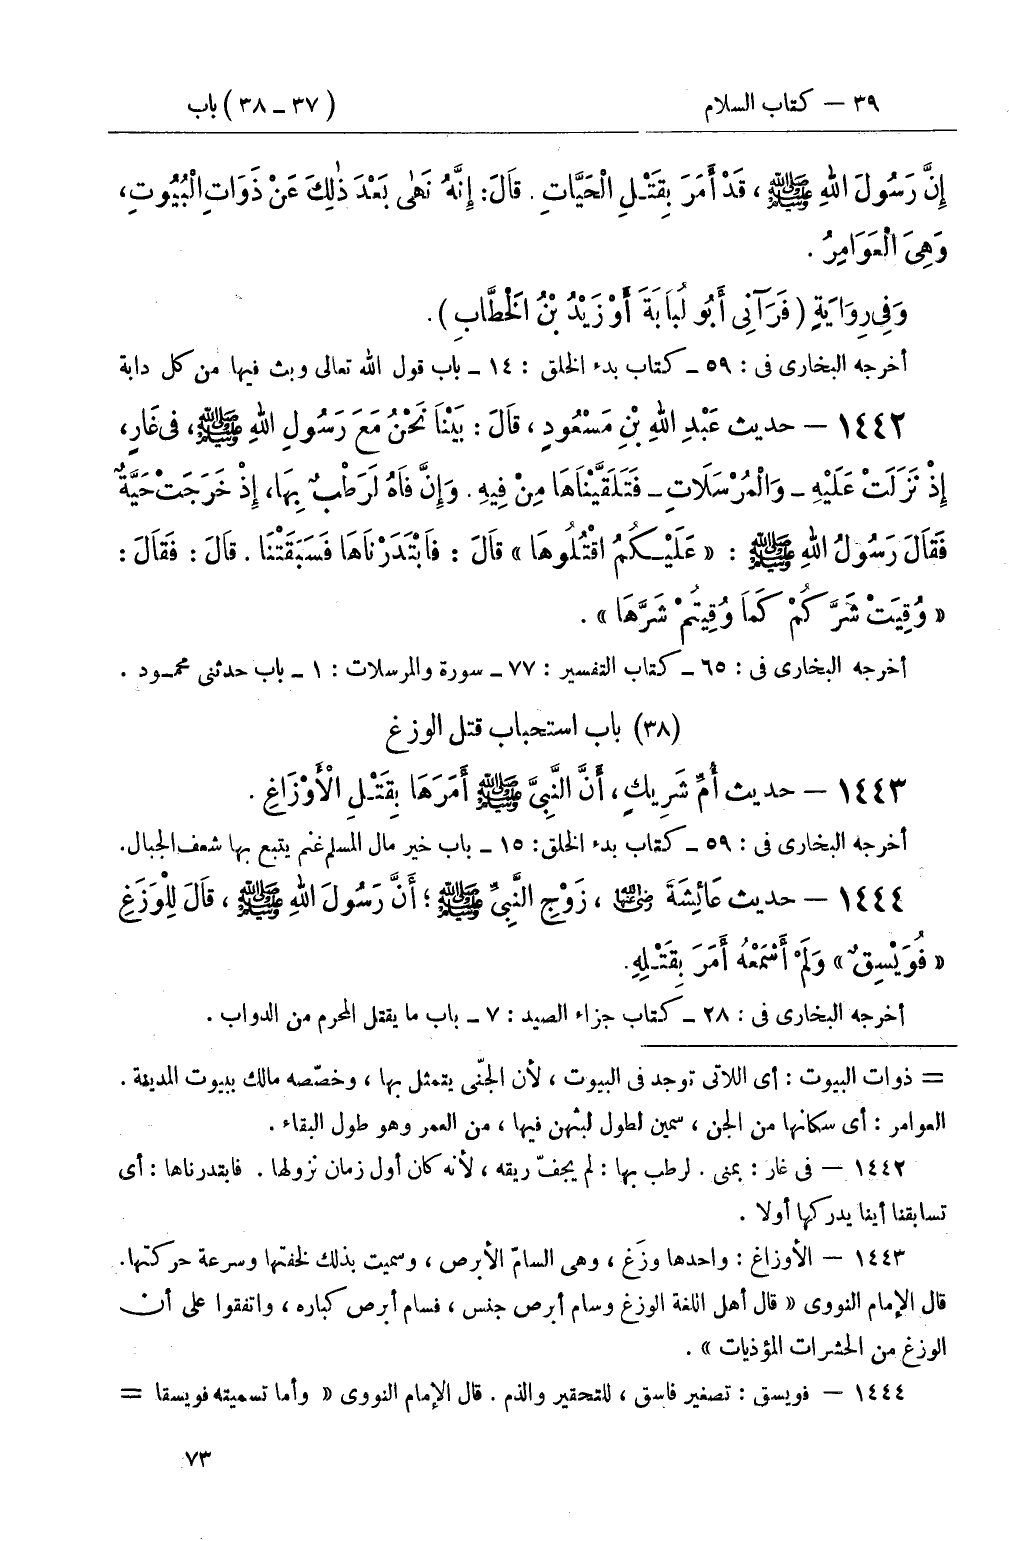 ٣٩ — كتاب السلام (٣٧ ـ ٣٨) باب
إِنَّ رَسُولَ اللهِ ﷺ، قَدْ أَمَرَ بِقَتْلِ الْحَيَّاتِ. قَالَ: إِنَّهُ نَهٰى بَعْدَ ذٰلِكَ عَنْ ذَوَاتِ الْبُيُوتِ،
وَهِىَ الْعَوَامِرُ.
وَفِى رِوَايَةٍ (فَرَآنِى أَبُو لُبَابَةَ أَوْ زَيْدُ بْنُ الْخَطَّابِ).
أخرجه البخارى فى: ٥٩ ـ كتاب بدء الخلق: ١٤ ـ باب قول الله تعالى وبث فيها من كل دابة
١٤٤٢ — حديث عَبْدِ اللهِ بْنِ مَسْعُودٍ، قَالَ: بَيْنَا نَحْنُ مَعَ رَسُولِ اللهِ ﷺ، فِى غَارٍ،
إِذْ نَزَلَتْ عَلَيْهِ ـ وَالْمُرْسَلَاتِ ـ فَتَلَقَّيْنَاهَا مِنْ فِيهِ. وَإِنَّ فَاهُ لَرَطْبٌ بِهَا، إِذْ خَرَجَتْ حَيَّةٌ
فَقَالَ رَسُولُ اللهِ ﷺ: «عَلَيْكُمُ اقْتُلُوهَا» قَالَ: فَابْتَدَرْنَاهَا فَسَبَقَتْنَا. قَالَ: فَقَالَ:
«وُقِيَتْ شَرَّكُمْ كَمَا وُقِيتُمْ شَرَّهَا».
أخرجه البخارى فى: ٦٥ ـ كتاب التفسير: ٧٧ ـ سورة والمرسلات: ١ ـ باب حدثنى محمود.
(٣٨) باب استحباب قتل الوزغ
١٤٤٣ — حديث أُمِّ شَرِيكٍ، أَنَّ النَّبِىَّ ﷺ أَمَرَهَا بِقَتْلِ الْأَوْزَاغِ.
أخرجه البخارى فى: ٥٩ ـ كتاب بدء الخلق: ١٥ ـ باب خير مال المسلم غنم يتبع بها شعف الجبال.
١٤٤٤ — حديث عَائِشَةَ رضي الله عنها، زَوْجِ النَّبِىِّ ﷺ؛ أَنَّ رَسُولَ اللهِ ﷺ، قَالَ لِلْوَزَغِ
«فُوَيْسِقٌ» وَلَمْ أَسْمَعْهُ أَمَرَ بِقَتْلِهِ.
أخرجه البخارى فى: ٢٨ ـ كتاب جزاء الصيد: ٧ ـ باب ما يقتل المحرم من الدواب.
= ذوات البيوت: أى اللاتى توجد فى البيوت، لأن الجنّى يتمثل بها، وخصّصه مالك ببيوت المدينة.
العوامر: أى سكانها من الجن، سمين لطول لبثهن فيها، من العمر وهو طول البقاء.
١٤٤٢ — فى غار: بمنى. لرطب بها: لم يجفّ ريقه، لأنه كان أول زمان نزولها. فابتدرناها: أى
تسابقنا أينا يدركها أولا.
١٤٤٣ — الأوزاغ: واحدها وزَغ، وهى السامّ الأبرص، وسميت بذلك لخفتها وسرعة حركتها.
قال الإمام النووى «قال أهل اللغة الوزغ وسام أبرص جنس، فسام أبرص كباره، واتفقوا على أن
الوزغ من الحشرات المؤذيات».
١٤٤٤ — فويسق: تصغير فاسق، للتحقير والذم. قال الإمام النووى «وأما تسميته فويسقا =
٧٣